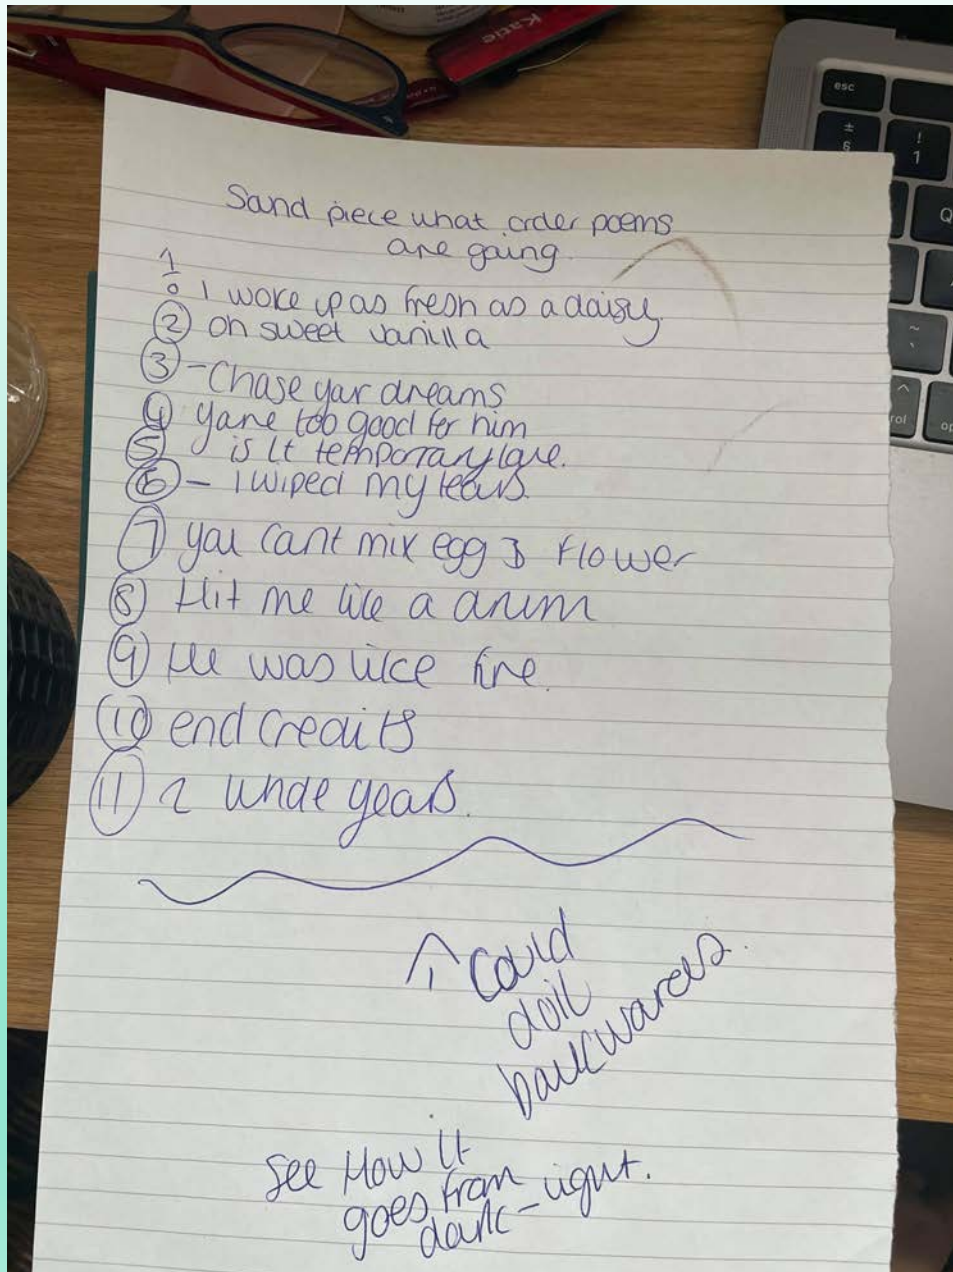 Katie
esc
±
§
!
1
Q
A
~
`
^
rol
op
Sound piece what order poems
are going.
1
I woke up as fresh as a daisy.
② oh sweet vanilla
③ - Chase your dreams
④ you're too good for him
⑤ is it temporary love.
⑥ - I wiped my tears.
⑦ you cant mix egg & flower
⑧ Hit me like a drum
⑨ He was like fire.
⑩ end credits
⑪ 2 whole years.
↑ Could
do it
backwards.
See How it
goes from
dark - light.